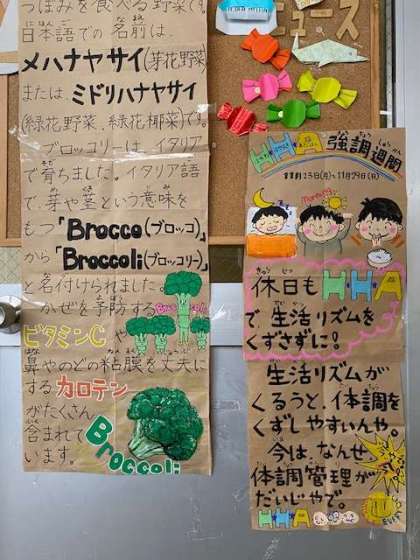 つぼみを食べる野菜です。
日本語での名前は、
メハナヤサイ(芽花野菜)
または、ミドリハナヤサイ
(緑花野菜、緑花椰菜)です。
ブロッコリーは、イタリア
で育ちました。イタリア語
で、芽や茎という意味を
もつ「Brocco(ブロッコ)」
から「Broccoli(ブロッコリー)」
と名付けられました。
かぜを予防する
ビタミンCや
鼻やのどの粘膜を丈夫に
するカロテン
がたくさん
含まれて
います。
Broccoli
ュース
HHA強調週間
11月29日(日)
Morning
休日もHHA
で、生活リズムを
くずさずに!
生活リズムが
くるうと、体調を
くずしやすいんや。
今は、なんせ
体調管理が
だいじやで。
HHA